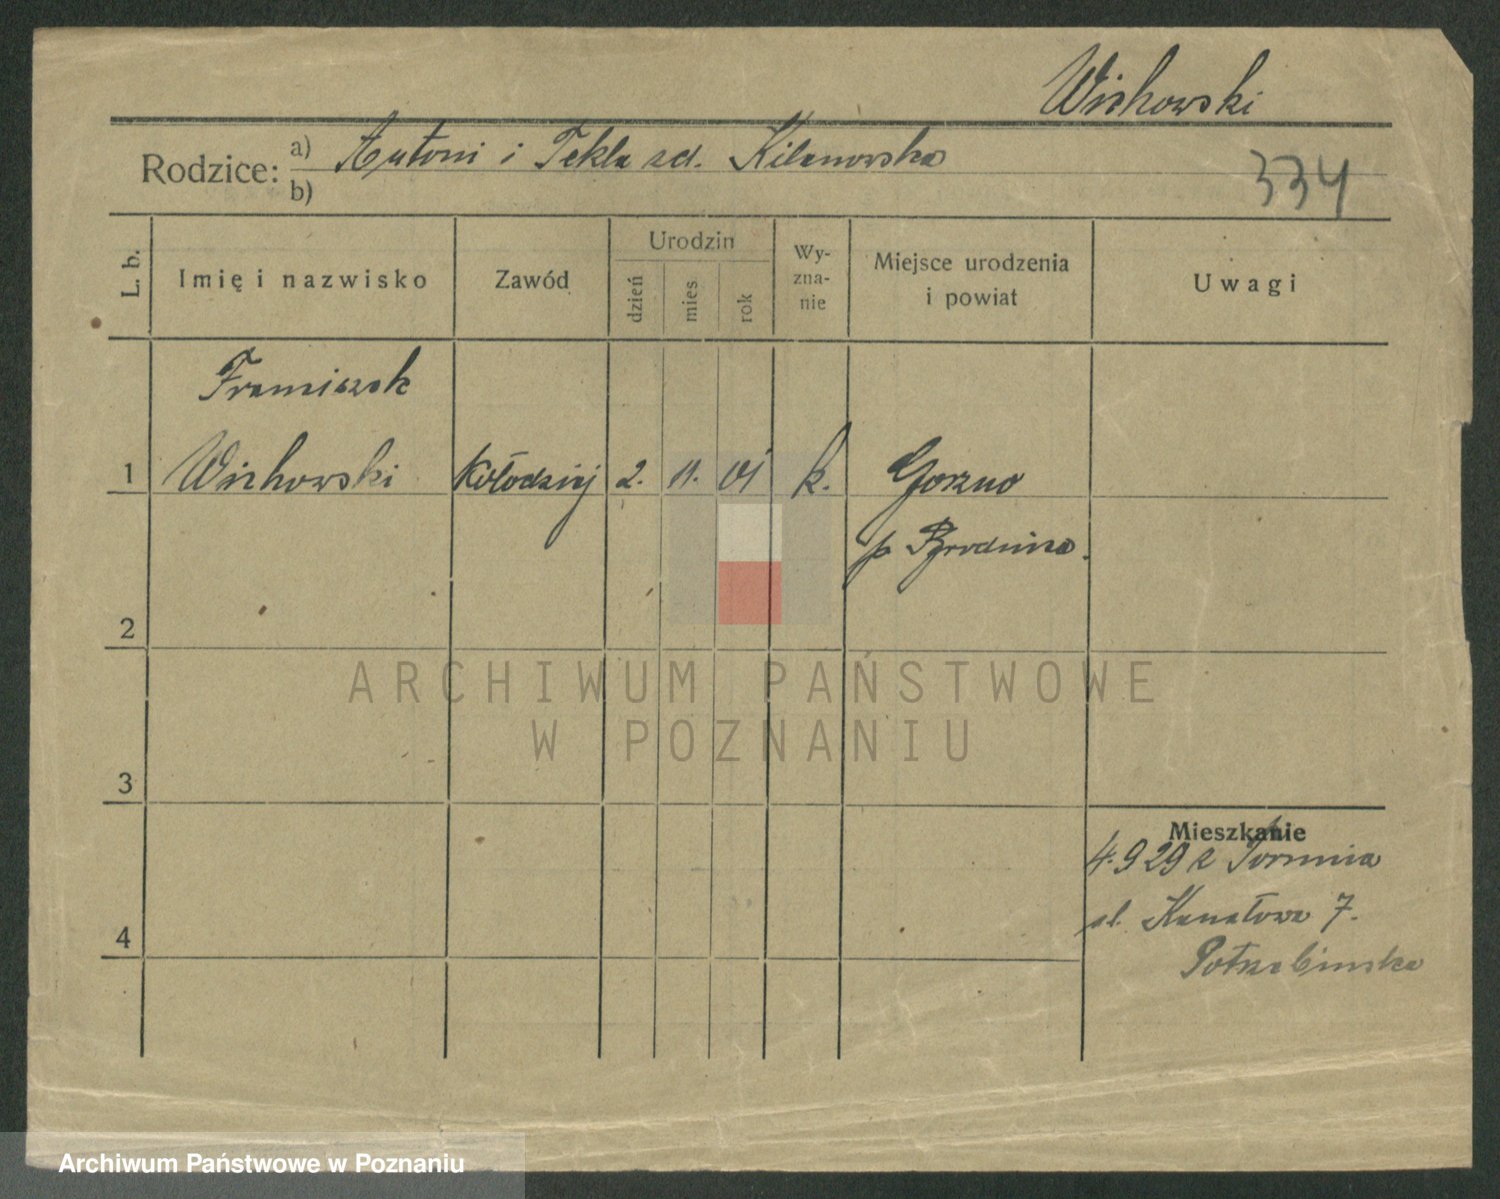 Wichowski
Rodzice: a) Antoni i Tekla zd. Kilanowska
b)
334
L. b.
Imię i nazwisko
Zawód
Urodzin
dzień
mies.
rok
Wy-
zna-
nie
Miejsce urodzenia
i powiat
Uwagi
Franciszek
1 Wichowski Kołodziej 2. 11. 01 k. Gorzno
p. Brodnica.
2
ARCHIWUM PAŃSTWOWE
W POZNANIU
3
Mieszkanie
4.9 29 z Torunia
ul. Kanałowa 7.
4
Potrzebinska
Archiwum Państwowe w Poznaniu